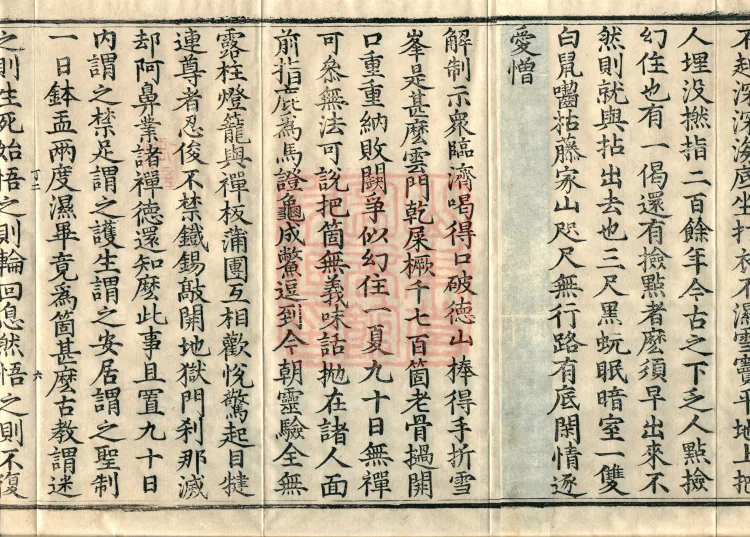 不起深深海底坐打初不濕雪竇平地上把
人埋没撚指二百餘年今古之下乏人點撿
幻住也有一偈還有撿點者麽須早出來不
然則就與拈出去也三尺黑蚖眠暗室一雙
白鼠嚙枯藤家山咫尺無行路有底閑情逐
愛憎
解制示衆臨濟喝得口破德山棒得手折雪
峯是甚麽雲門乾屎橛千七百箇老骨撾開
口重重納敗闕爭似幻住一夏九十日無禪
可叅無法可說把箇無義味話抛在諸人面
前指鹿爲馬證龜成鱉逗到今朝靈驗全無
露柱燈籠與禪板蒲團互相歡悅驚起目犍
連尊者忍俊不禁鐵錫敲開地獄門刹那滅
却阿鼻業諸禪德還知麽此事且置九十日
内謂之禁足謂之護生謂之安居謂之聖制
一日鉢盂兩度濕畢竟爲箇甚麽古教謂迷
丁二 六
之則生死始悟之則輪回息然悟之則不復